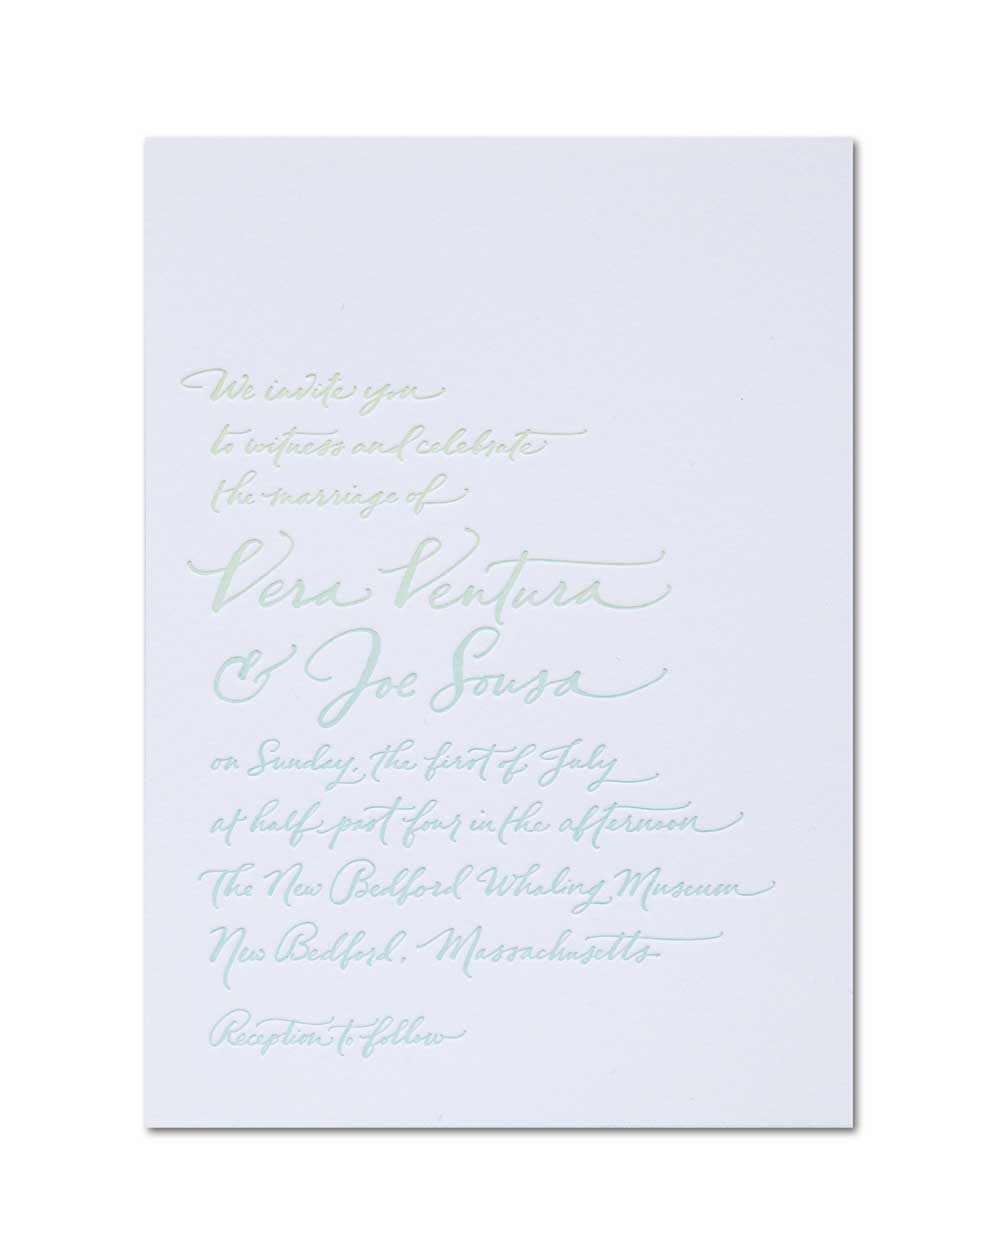 We invite you
to witness and celebrate
the marriage of
Vera Ventura
& Joe Sousa
on Sunday, the first of July
at half past four in the afternoon
The New Bedford Whaling Museum
New Bedford, Massachusetts
Reception to follow